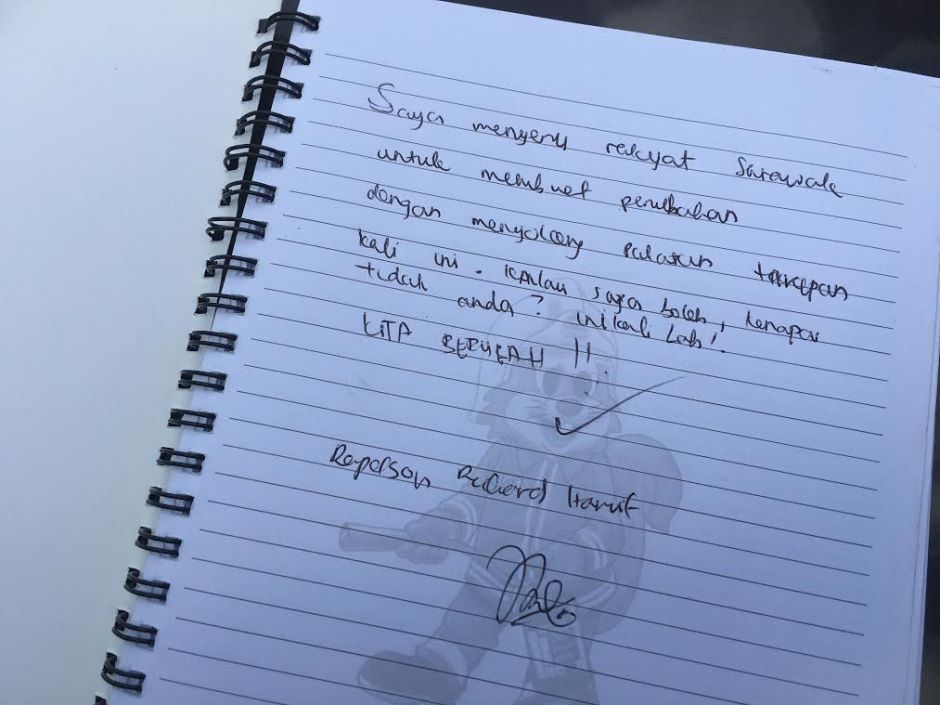 Saya menyeru rakyat Sarawak
untuk membuat perubahan
dengan menyokong calon
kali ini. Kalau saya boleh, kenapa
tidak anda? Inikali Lah!
KITA BERUBAH !!
Richard